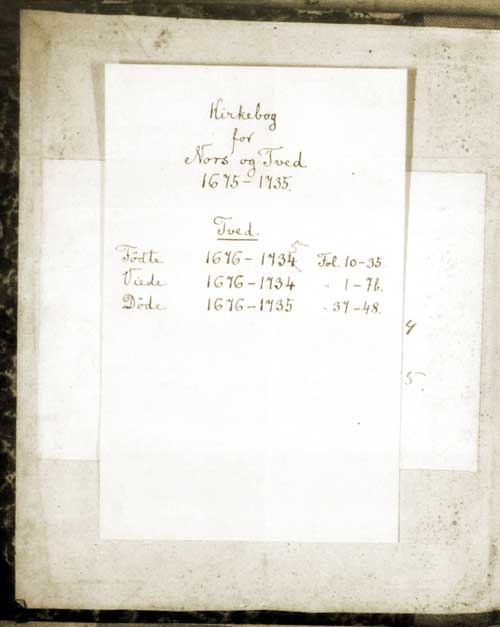 Kirkebog
for
Nors og Tved
1675-1735.
Tved.
Fødte 1676-1734 5 Fol. 10-35
Viede 1676-1734 " 1-7b.
Døde 1676-1735 " 37-48.
4
5.